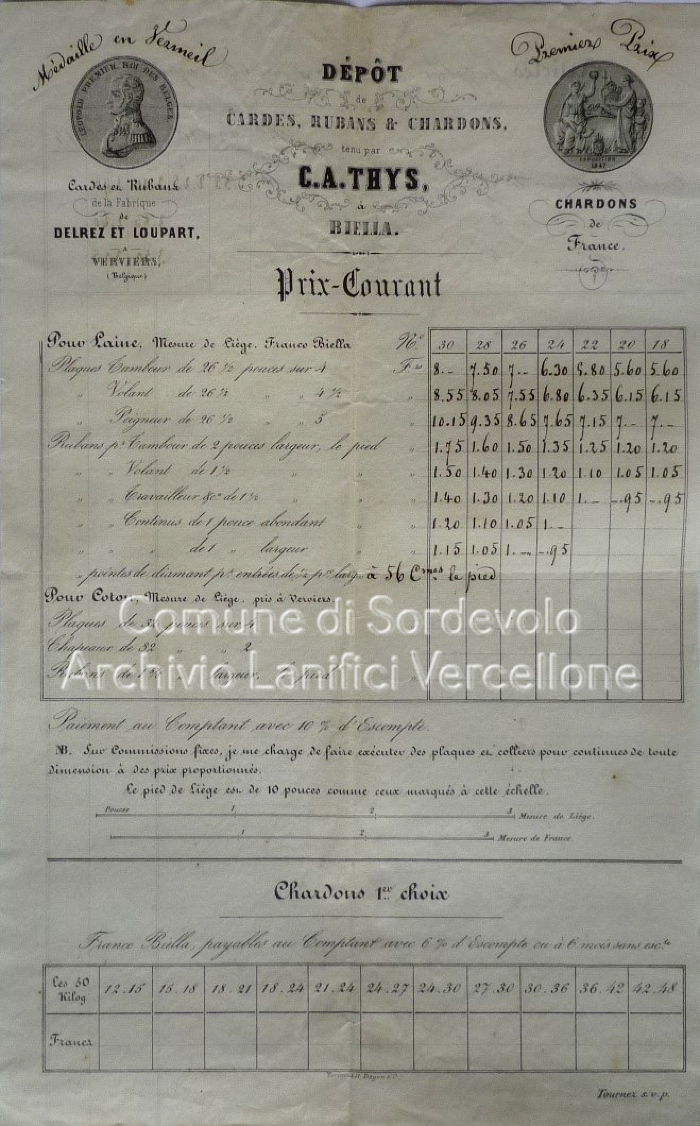 Médaille en Vermeil
LEOPOLD PREMIER ROI DES BELGES
Cardes et Rubans
de la Fabrique
de
DELREZ ET LOUPART,
à
VERVIERS,
(Belgique)
DÉPÔT
de
CARDES, RUBANS & CHARDONS,
tenu par
C.A. THYS,
à
BIELLA.
Premier Prix
EXPOSITION
1847
CHARDONS
de
France.
Prix-Courant
Pour Laine, Mesure de Liège. Franco Biella N.os 30 28 26 24 22 20 18
Plaques Tambour de 26 1/2 pouces sur 4 Fcs 8.- 7.50 7.- 6.30 5.80 5.60 5.60
" Volant de 26 1/2 " " 4 1/2 " 8.55 8.05 7.55 6.80 6.35 6.15 6.15
" Peigneur de 26 1/2 " " 5 " 10.15 9.35 8.65 7.65 7.15 7.- 7.-
Rubans pr. Tambour de 2 pouces largeur, le pied " 1.75 1.60 1.50 1.35 1.25 1.20 1.20
" " Volant de 1 1/2 " " " 1.50 1.40 1.30 1.20 1.10 1.05 1.05
" " Travailleur &c. de 1 1/2 " " " 1.40 1.30 1.20 1.10 1.- -.95 -.95
" " Continus de 1 pouce abondant " " 1.20 1.10 1.05 1.-
" " " de 1 " largeur " " 1.15 1.05 1.- -.95
" pointes de diamant pr. entrées de 1/2 pce. larg. à 56 Cmes. le pied
Pour Coton, Mesure de Liège. pris à Verviers.
Plaques de 32 pouces sur 4
Chapeaux de 32 " " 2
Rubans de 1 1/2 " largeur, le pied
Comune di Sordevolo
Archivio Lanifici Vercellone
Paiement au Comptant avec 10 % d'Escompte.
NB. Sur Commissions fixes, je me charge de faire exécuter des plaques et colliers pour continues de toute
dimension à des prix proportionnés.
Le pied de Liège est de 10 pouces comme ceux marqués à cette échelle.
Pouces 1 2 3 Mesure de Liège.
1 2 3 Mesure de France.
Chardons 1er. choix
Franco Biella, payables au Comptant avec 6 % d'Escompte ou à 6 mois sans esc.te
Les 50 Kilog. 12.15 15.18 18.21 18.24 21.24 24.27 24.30 27.30 30.36 36.42 42.48
Francs
Tournez s.v.p.